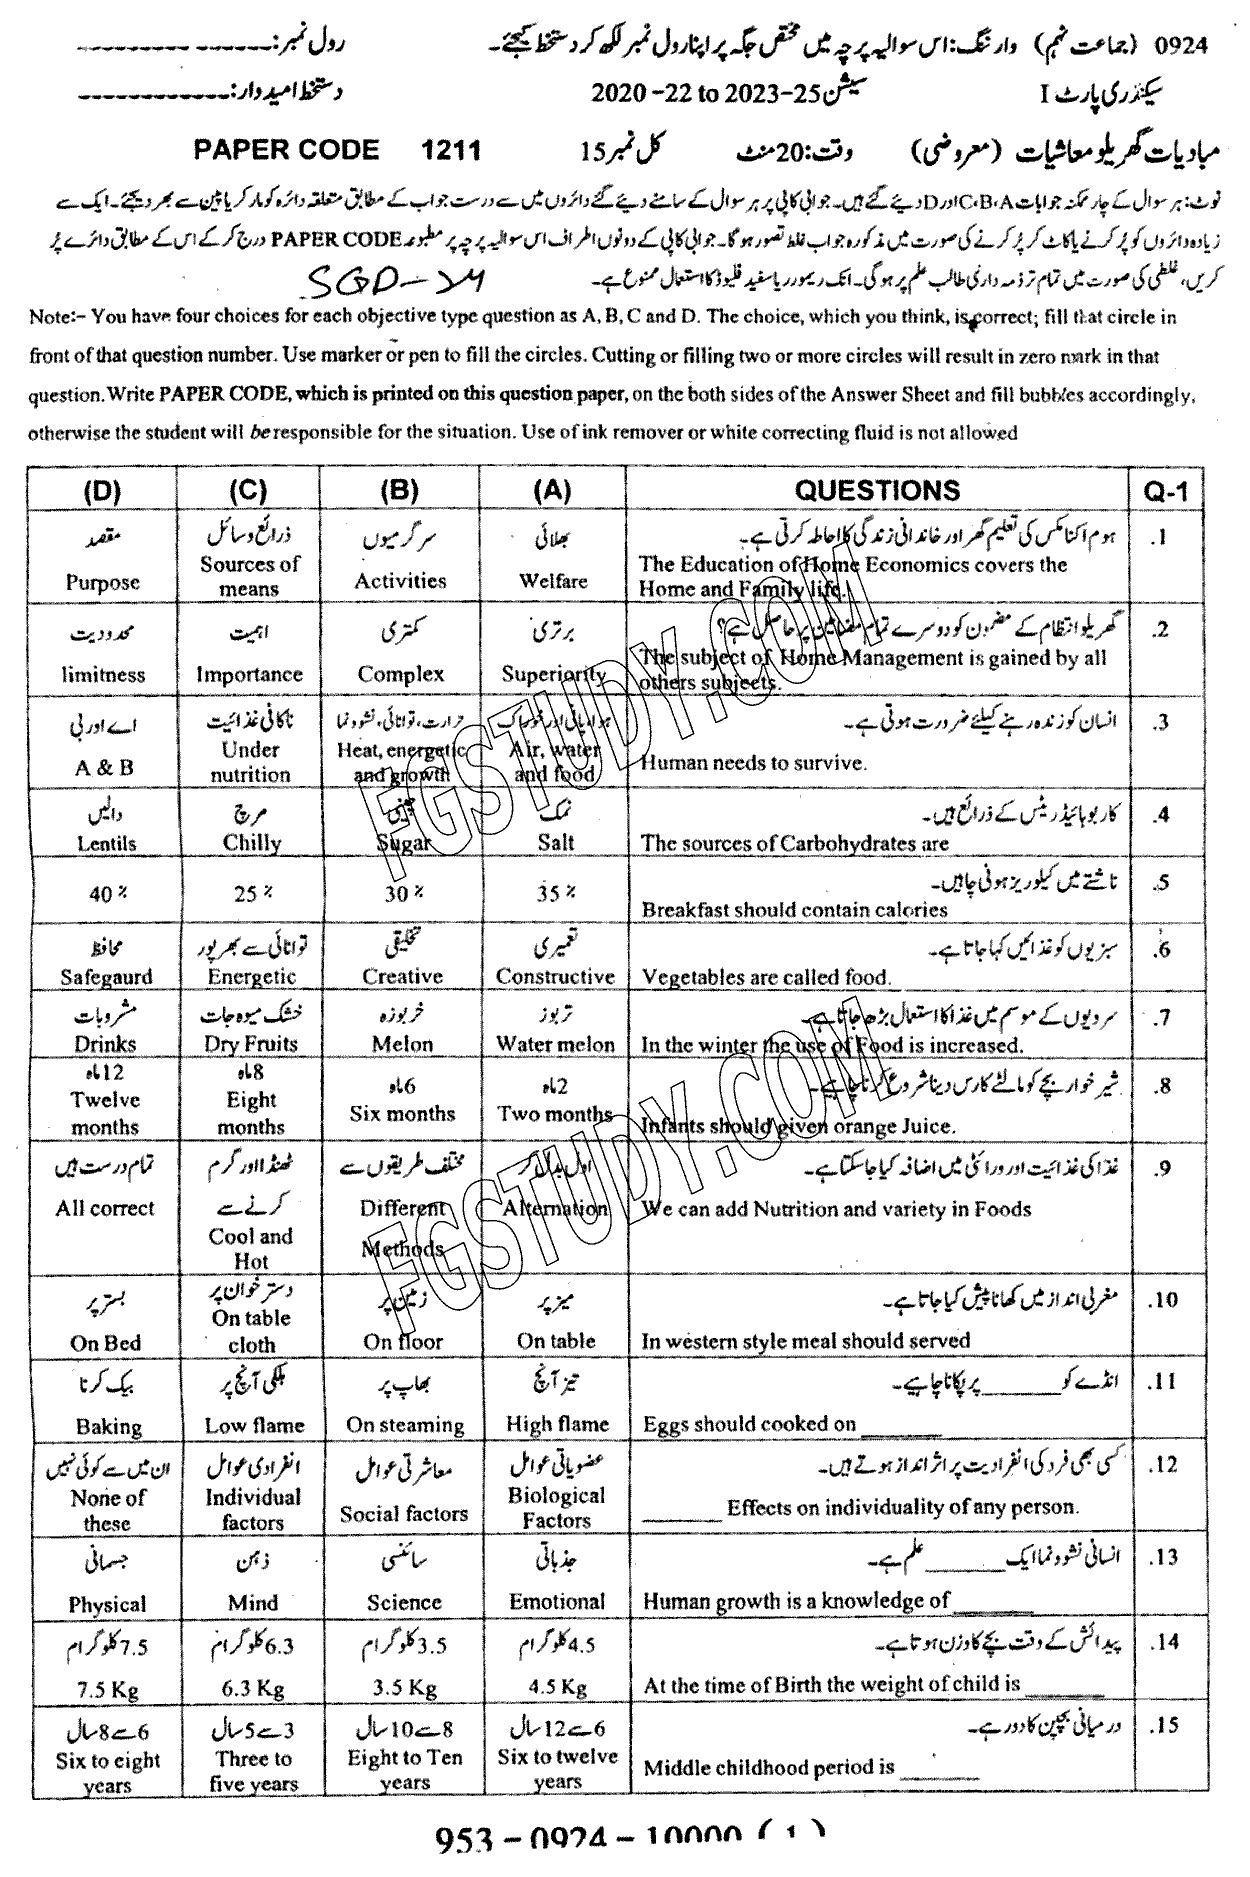 0924 (جماعت نہم) وارننگ: اس سوالیہ پرچہ میں مختص جگہ پر اپنا رول نمبر لکھ کر دستخط کیجئے۔ رول نمبر:
سیکنڈری پارٹ I سیشن 2020-22 to 2023-25 دستخط امیدوار:
مبادیات گھریلو معاشیات (معروضی) وقت: 20 منٹ کل نمبر 15 PAPER CODE 1211
نوٹ: ہر سوال کے چار ممکنہ جوابات C،B،A اور D دیئے گئے ہیں۔ جوابی کاپی پر ہر سوال کے سامنے دیئے گئے دائروں میں سے درست جواب کے مطابق متعلقہ دائرہ کو مارکر یا پین سے بھر دیجئے۔ ایک سے
زیادہ دائروں کو پُر کرنے یا کاٹ کر پُر کرنے کی صورت میں مذکورہ جواب غلط تصور ہوگا۔ جوابی کاپی کے دونوں اطراف اس سوالیہ پرچہ پر مطبوعہ PAPER CODE درج کر کے اس کے مطابق دائرے پُر
کریں، غلطی کی صورت میں تمام تر ذمہ داری طالب علم پر ہوگی۔ انک ریموور یا سفید فلیوڈ کا استعمال ممنوع ہے۔
SGD-24
Note:- You have four choices for each objective type question as A, B, C and D. The choice, which you think, is correct; fill that circle in
front of that question number. Use marker or pen to fill the circles. Cutting or filling two or more circles will result in zero mark in that
question. Write PAPER CODE, which is printed on this question paper, on the both sides of the Answer Sheet and fill bubbles accordingly,
otherwise the student will be responsible for the situation. Use of ink remover or white correcting fluid is not allowed
(D) (C) (B) (A) QUESTIONS Q-1
مقصد ذرائع وسائل سرگرمیوں بھلائی ہوم اکنامکس کی تعلیم گھر اور خاندانی زندگی کا احاطہ کرتی ہے۔ .1
Purpose Sources of means Activities Welfare The Education of Home Economics covers the
Home and Family life.
محدودیت اہمیت کمتری برتری گھریلو انتظام کے مضمون کو دوسرے تمام مضامین پر حاصل ہے؟ .2
limitness Importance Complex Superiority The subject of Home Management is gained by all
others subjects.
اے اور بی ناکافی غذائیت حرارت، توانائی، نشوونما ہوا، پانی اور خوراک انسان کو زندہ رہنے کیلئے ضرورت ہوتی ہے۔ .3
A & B Under nutrition Heat, energetic and growth Air, water and food Human needs to survive.
دالیں مرچ چینی نمک کاربوہائیڈریٹس کے ذرائع ہیں۔ .4
Lentils Chilly Sugar Salt The sources of Carbohydrates are
ناشتے میں کیلوریز ہونی چاہیں۔ .5
40 % 25 % 30 % 35 % Breakfast should contain calories
محافظ توانائی سے بھرپور تخلیقی تعمیری سبزیوں کو غذائیں کہا جاتا ہے۔ .6
Safegaurd Energetic Creative Constructive Vegetables are called food.
مشروبات خشک میوہ جات خربوزہ تربوز سردیوں کے موسم میں غذا کا استعمال بڑھ جاتا ہے۔ .7
Drinks Dry Fruits Melon Water melon In the winter the use of Food is increased.
12ماہ 8ماہ 6ماہ 2ماہ شیر خوار بچے کو مالٹے کا رس دینا شروع کرنا چاہیے۔ .8
Twelve months Eight months Six months Two months Infants should given orange Juice.
تمام درست ہیں ٹھنڈا اور گرم کرنے سے مختلف طریقوں سے ادل بدل کر غذا کی غذائیت اور ورائٹی میں اضافہ کیا جا سکتا ہے۔ .9
All correct Cool and Hot Different Methods Alternation We can add Nutrition and variety in Foods
بستر پر دسترخوان پر زمین پر میز پر مغربی انداز میں کھانا پیش کیا جاتا ہے۔ .10
On Bed On table cloth On floor On table In western style meal should served
بیک کرنا ہلکی آنچ پر بھاپ پر تیز آنچ انڈے کو ______ پر پکانا چاہیے۔ .11
Baking Low flame On steaming High flame Eggs should cooked on ______
ان میں سے کوئی نہیں انفرادی عوامل معاشرتی عوامل عضویاتی عوامل کسی بھی فرد کی انفرادیت پر اثر انداز ہوتے ہیں۔ .12
None of these Individual factors Social factors Biological Factors ______ Effects on individuality of any person.
جسمانی ذہن سائنسی جذباتی انسانی نشوونما ایک ______ علم ہے۔ .13
Physical Mind Science Emotional Human growth is a knowledge of ______
7.5کلوگرام 6.3کلوگرام 3.5کلوگرام 4.5کلوگرام پیدائش کے وقت بچے کا وزن ہوتا ہے۔ .14
7.5 Kg 6.3 Kg 3.5 Kg 4.5 Kg At the time of Birth the weight of child is ______
6سے8سال 3سے5سال 8سے10سال 6سے12سال درمیانی بچپن کا دور ہے۔ .15
Six to eight years Three to five years Eight to Ten years Six to twelve years Middle childhood period is ______
953-0924-10000 (1)
FGSTUDY.COM
FGSTUDY.COM